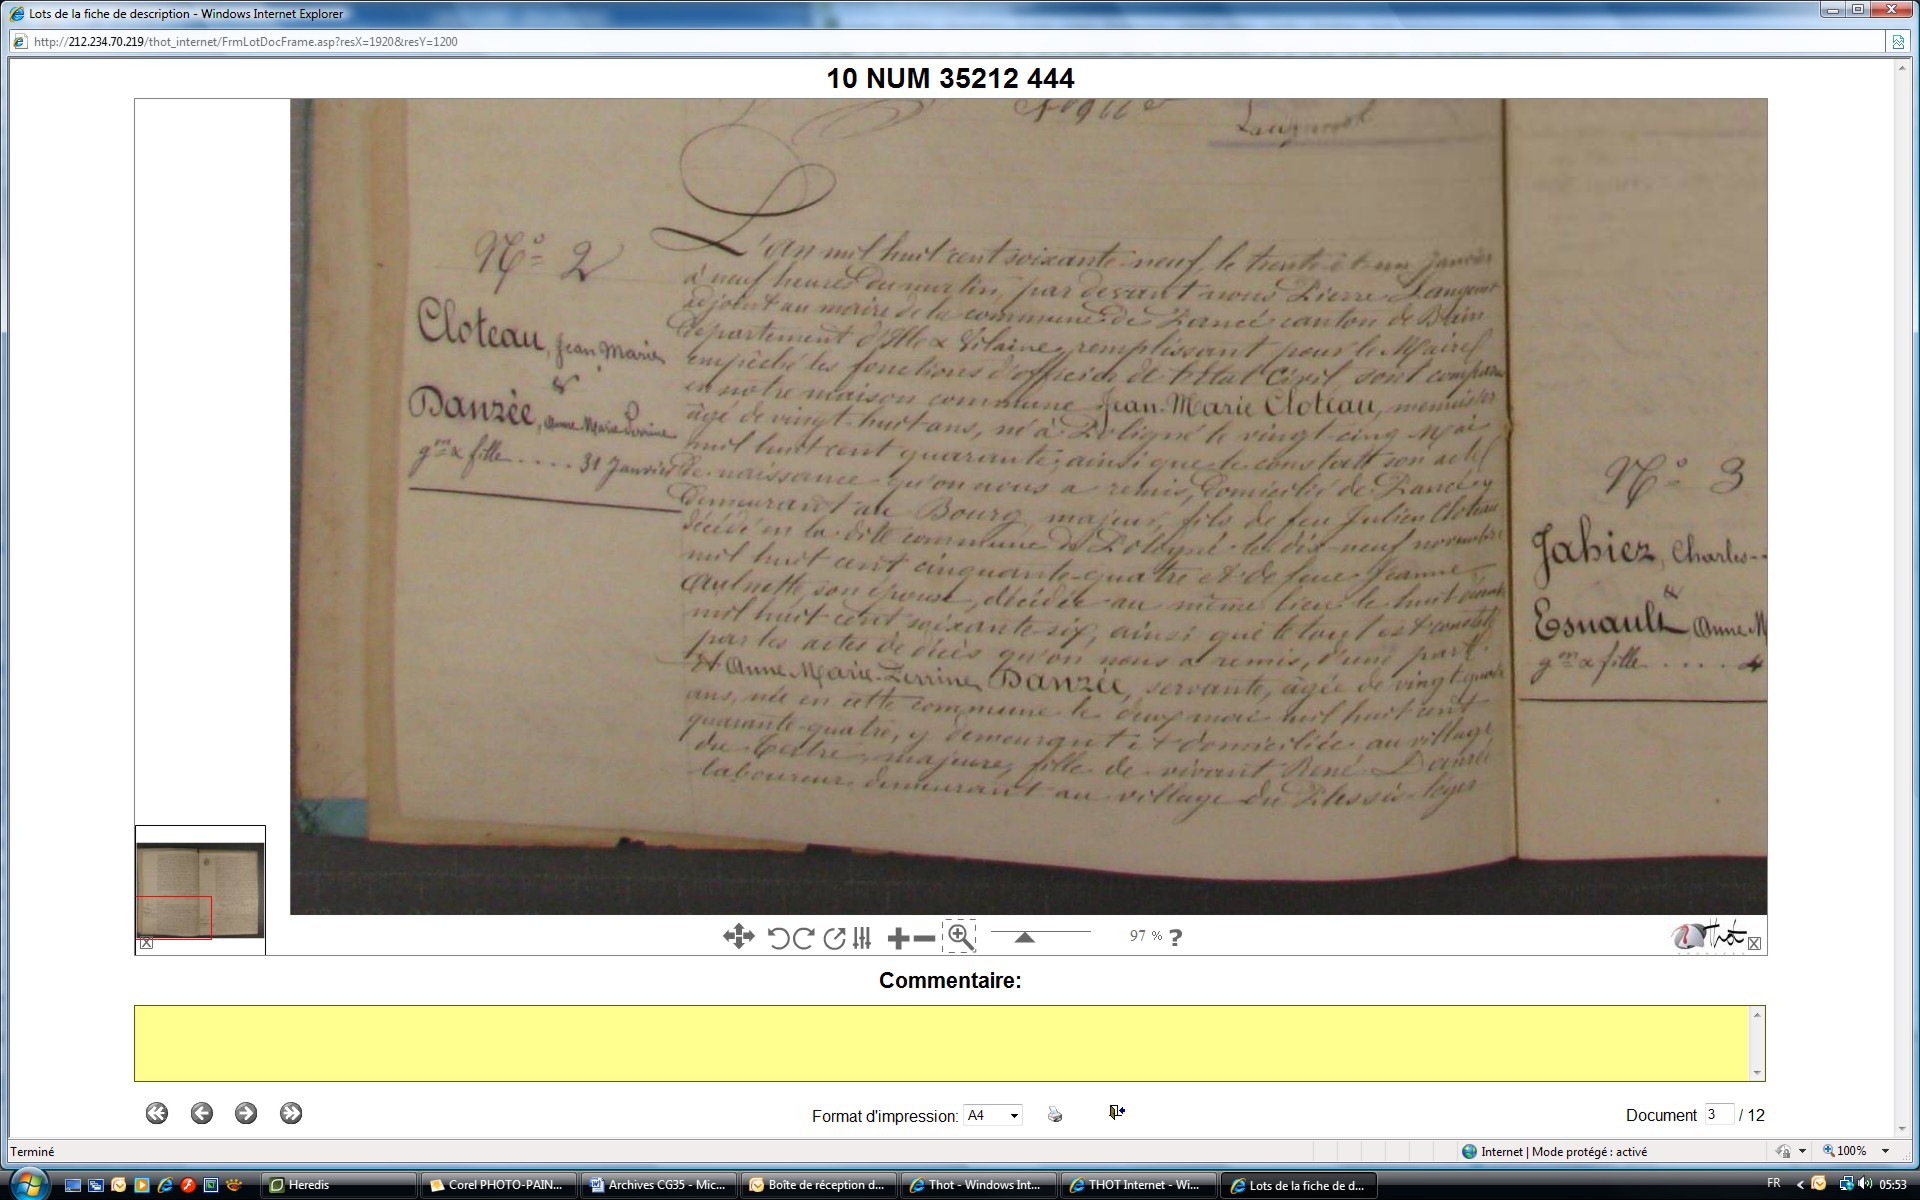 Lots de la fiche de description - Windows Internet Explorer
http://212.234.70.219/thot_internet/FrmLotDocFrame.asp?resX=1920&resY=1200
10 NUM 35212 444
N° 2
Cloteau, Jean Marie
&
Danzée, Anne Marie Perrine
gᵐ & fille .... 31 Janvier
L'an mil huit cent soixante-neuf, le trente et un Janvier
à neuf heures du matin, par devant nous Pierre Langouet
adjoint au maire de la commune de Pancé canton de Bain
département d'Ille & Vilaine, remplissant pour le Maire
empêché les fonctions d'officier de l'État Civil sont comparus
en notre maison commune Jean-Marie Cloteau, menuisier
âgé de vingt-huit ans, né à Poligné le vingt-cinq Mai
mil huit cent quarante; ainsi que le constate son acte
de naissance qu'on nous a remis, domicilié de Pancé y
demeurant au Bourg, majeur, fils de feu Julien Cloteau
décédé en la dite commune de Poligné le dix-neuf novembre
mil huit cent cinquante-quatre et de feue Jeanne
Aulnette, son épouse, décédée au même lieu le huit
mil huit cent soixante-six, ainsi que le tout est constaté
par les actes de décès qu'on nous a remis, d'une part.
Et Anne-Marie-Perrine Danzée, servante, âgée de vingt-quatre
ans, née en cette commune le deux mai mil huit cent
quarante-quatre, y demeurant et domiciliée au village
du Tertre, majeure, fille de vivant René Danzée
laboureur demeurant au village du Plessis-léger
N° 3
Jahiez, Charles--
&
Esnault Anne M
gᵐ & fille .... 4
97 % ?
Thot
Commentaire:
Format d'impression: A4
Document 3 / 12
Terminé
Internet | Mode protégé : activé
100%
Heredis
Corel PHOTO-PAIN...
Archives CG35 - Mic...
Boîte de réception d...
Thot - Windows Int...
THOT Internet - Wi...
Lots de la fiche de d...
FR
05:53